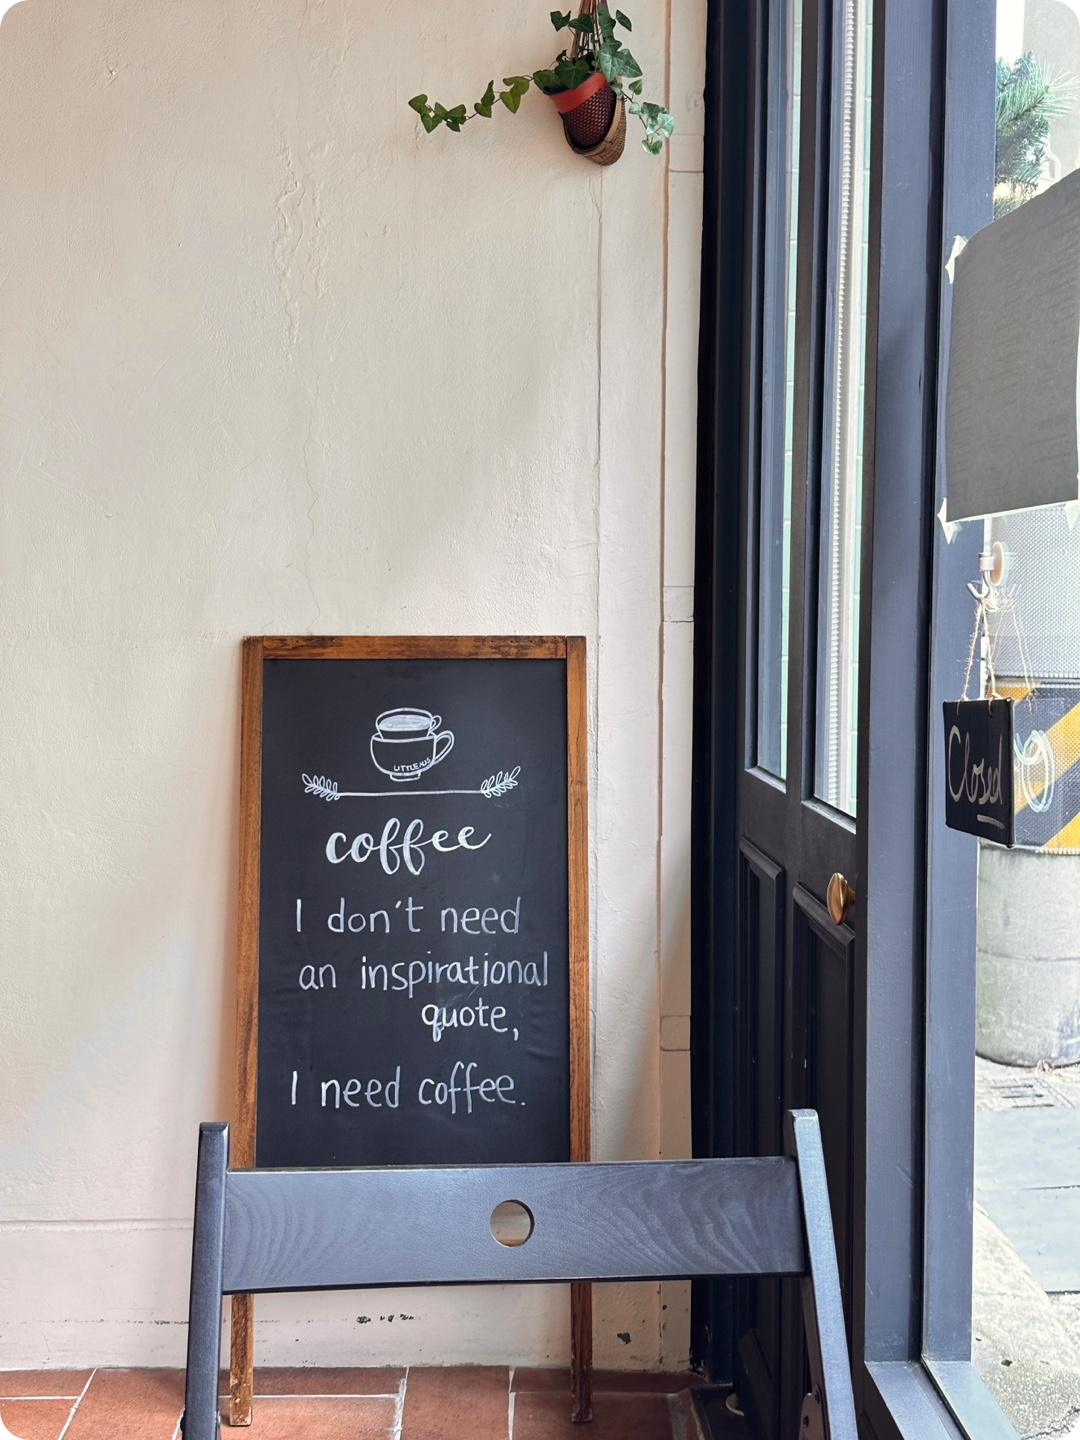 coffee
I don't need
an inspirational
quote,
I need coffee.
Closed